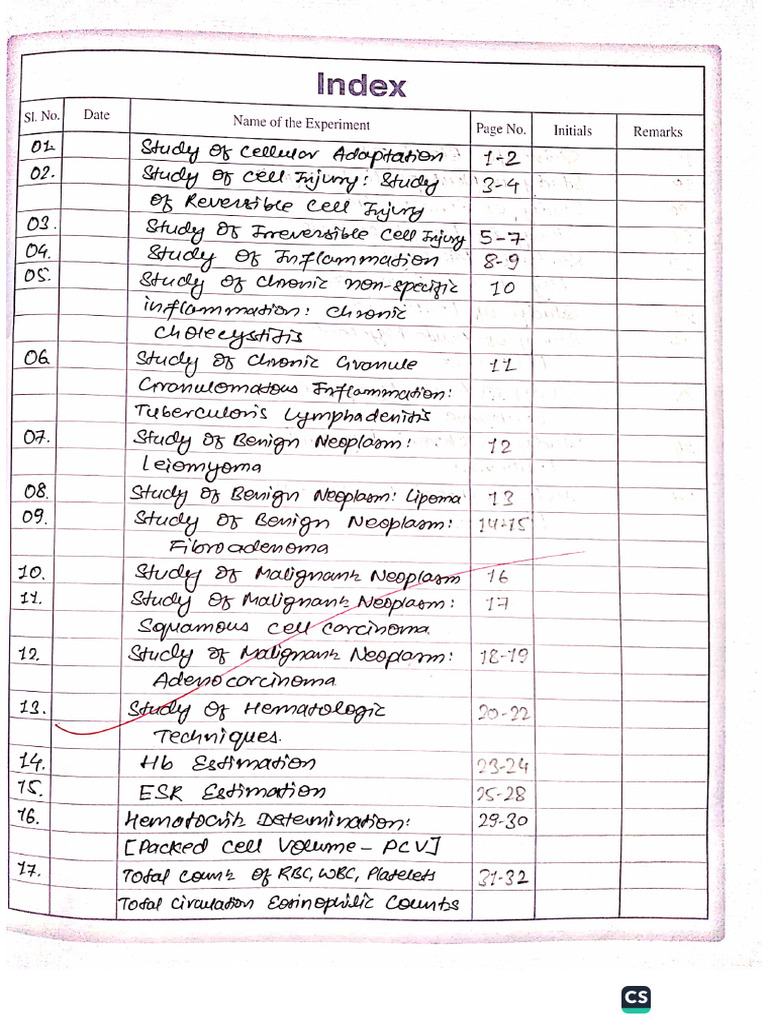 Index
Sl. No. Date Name of the Experiment Page No. Initials Remarks
01. Study of Cellular Adaptation: 1-2
02. Study of Cell Injury: Study 3-4
of Reversible Cell Injury
03. Study of Irreversible Cell Injury 5-7
04. Study of Inflammation 8-9
05. Study of Chronic non-specific 10
inflammation: Chronic
Cholecystitis
06. Study of Chronic Granule 11
Granulomatous Inflammation:
Tuberculoris Lymphadenitis
07. Study of Benign Neoplasm: 12
Leiomyoma
08. Study of Benign Neoplasm: Lipoma 13
09. Study of Benign Neoplasm: 14-15
Fibroadenoma
10. Study of Malignant Neoplasm 16
11. Study of Malignant Neoplasm: 17
Squamous cell carcinoma.
12. Study of Malignant Neoplasm: 18-19
Adenocarcinoma
13. Study of Hematologic 20-22
Techniques.
14. Hb Estimation 23-24
15. ESR Estimation 25-28
16. Hematocrit Determination: 29-30
[Packed Cell Volume - PCV]
17. Total Count of RBC, WBC, Platelets 31-32
Total Circulation Eosinophilic Counts
CS